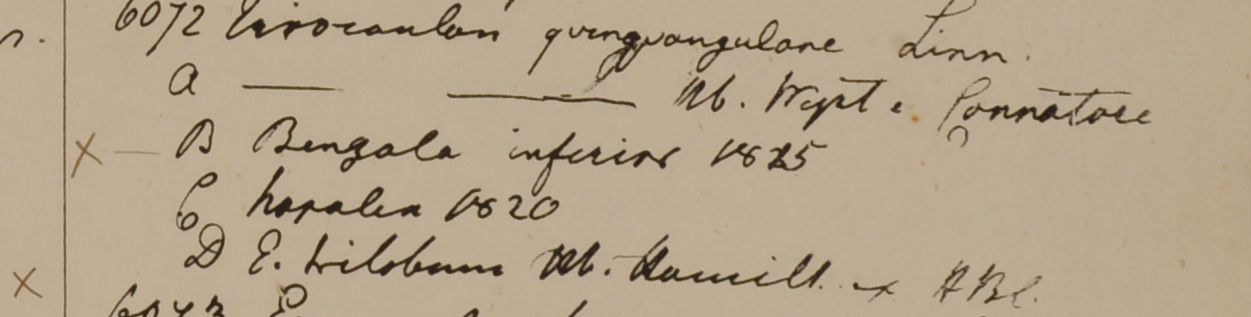 6072 Eriocaulon quinquangulare Linn.
A Hb. Wight e
B Bengala inferior 1825
C Napalia 1820
D E. trilobum Hb. Hamilt.
6073 E.